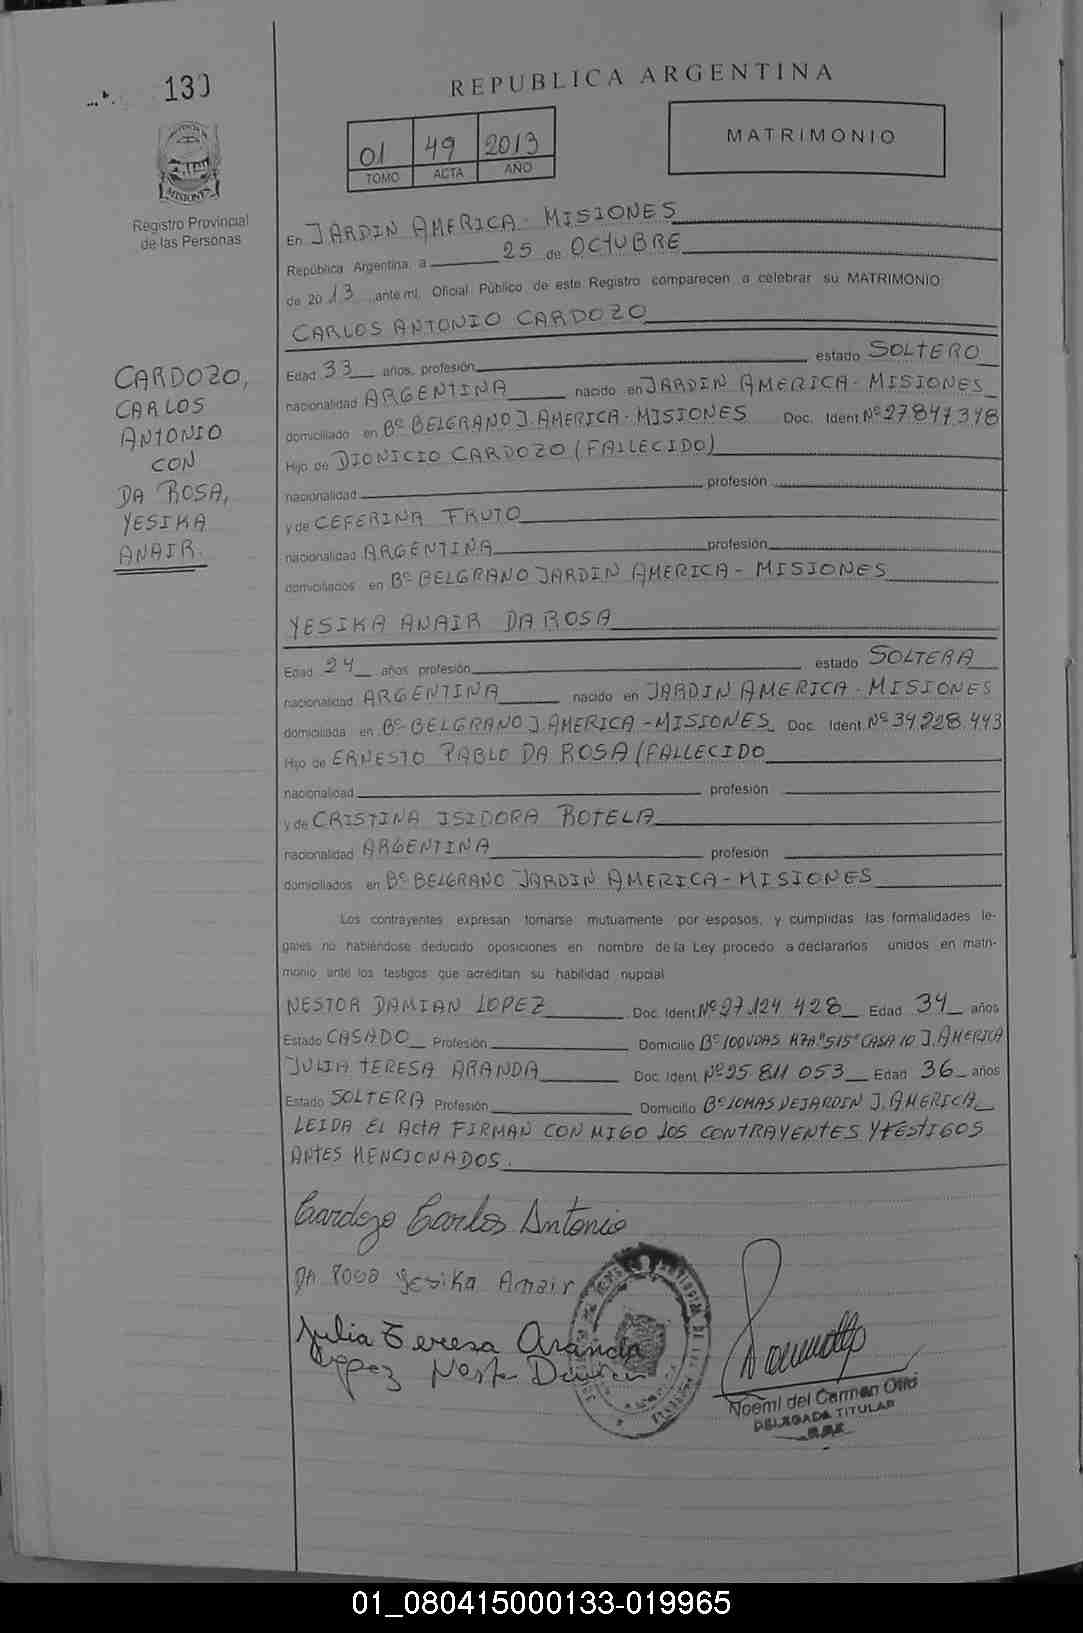 REPUBLICA ARGENTINA
01 49 2013
TOMO ACTA AÑO
MATRIMONIO
MISIONES
Registro Provincial
de las Personas
CARDOZO,
CARLOS
ANTONIO
CON
DA ROSA,
YESIKA
ANAIR.
En JARDIN AMERICA - MISIONES
República Argentina, a 25 de OCTUBRE
de 2013 ante mí, Oficial Público de este Registro comparecen a celebrar su MATRIMONIO
CARLOS ANTONIO CARDOZO
Edad 33 años, profesión estado SOLTERO
nacionalidad ARGENTINA nacido en JARDIN AMERICA - MISIONES
domiciliado en Bº BELGRANO J. AMERICA - MISIONES Doc. Ident. Nº 27.847.378
Hijo de DIONICIO CARDOZO (FALLECIDO)
nacionalidad profesión
y de CEFERINA FRUTO
nacionalidad ARGENTINA profesión
domiciliados en Bº BELGRANO JARDIN AMERICA - MISIONES
YESIKA ANAIR DA ROSA
Edad 24 años profesión estado SOLTERA
nacionalidad ARGENTINA nacido en JARDIN AMERICA - MISIONES
domiciliada en Bº BELGRANO J. AMERICA - MISIONES Doc. Ident. Nº 34.228.443
Hijo de ERNESTO PABLO DA ROSA (FALLECIDO
nacionalidad profesión
y de CRISTINA ISIDORA ROTELA
nacionalidad ARGENTINA profesión
domiciliados en Bº BELGRANO JARDIN AMERICA - MISIONES
Los contrayentes expresan tomarse mutuamente por esposos, y cumplidas las formalidades le-
gales no habiéndose deducido oposiciones en nombre de la Ley procedo a declararlos unidos en matri-
monio ante los testigos que acreditan su habilidad nupcial
NESTOR DAMIAN LOPEZ Doc. Ident. Nº 27.124.428 Edad 34 años
Estado CASADO Profesión Domicilio Bº 100 VDAS MZA "515" CASA 10 J. AMERICA
JULIA TERESA ARANDA Doc. Ident. Nº 25.811.053 Edad 36 años
Estado SOLTERA Profesión Domicilio Bº LOMAS DE JARDIN J. AMERICA
LEIDA EL ACTA FIRMAN CON MIGO LOS CONTRAYENTES Y TESTIGOS
ANTES MENCIONADOS.
Cardozo Carlos Antonio
DA ROSA Yesika Anair
Julia Teresa Aranda
Lopez Nestor Damian
Noemí del Carmen Otto
DELEGADA TITULAR
01_080415000133-019965